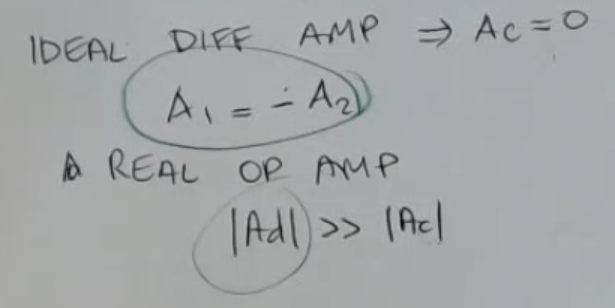 IDEAL DIFF AMP ⇒ Ac = 0
A₁ = - A₂
A REAL OP AMP
|Ad| >> |Ac|